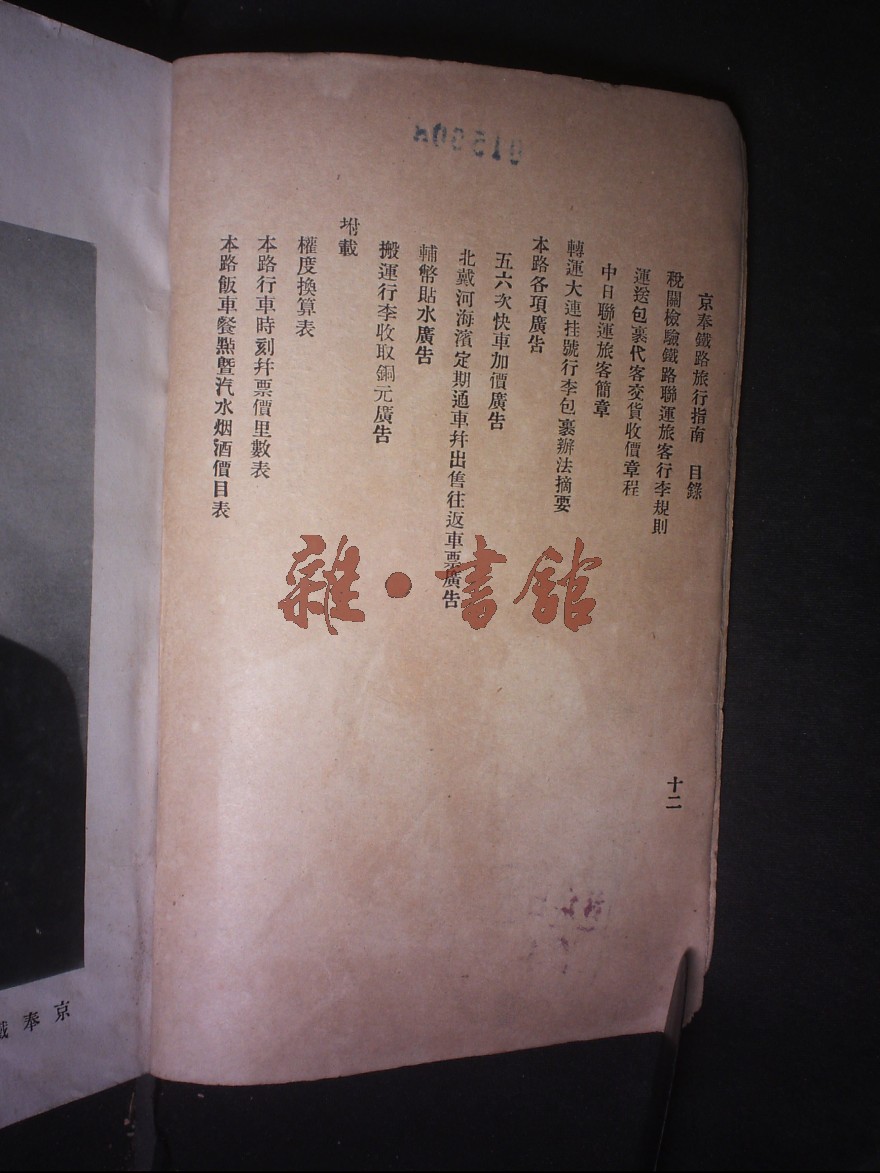 京奉鐵路旅行指南 目錄
稅關檢驗鐵路聯運旅客行李規則
運送包裹代客交貨收價章程
中日聯運旅客簡章
轉運大連挂號行李包裹辦法摘要
本路各項廣告
五六次快車加價廣告
北戴河海濱定期通車幷出售往返車票廣告
輔幣貼水廣告
搬運行李收取銅元廣告
坿載
權度換算表
本路行車時刻幷票價里數表
本路飯車餐點曁汽水烟酒價目表
十二
雜·書館
京奉